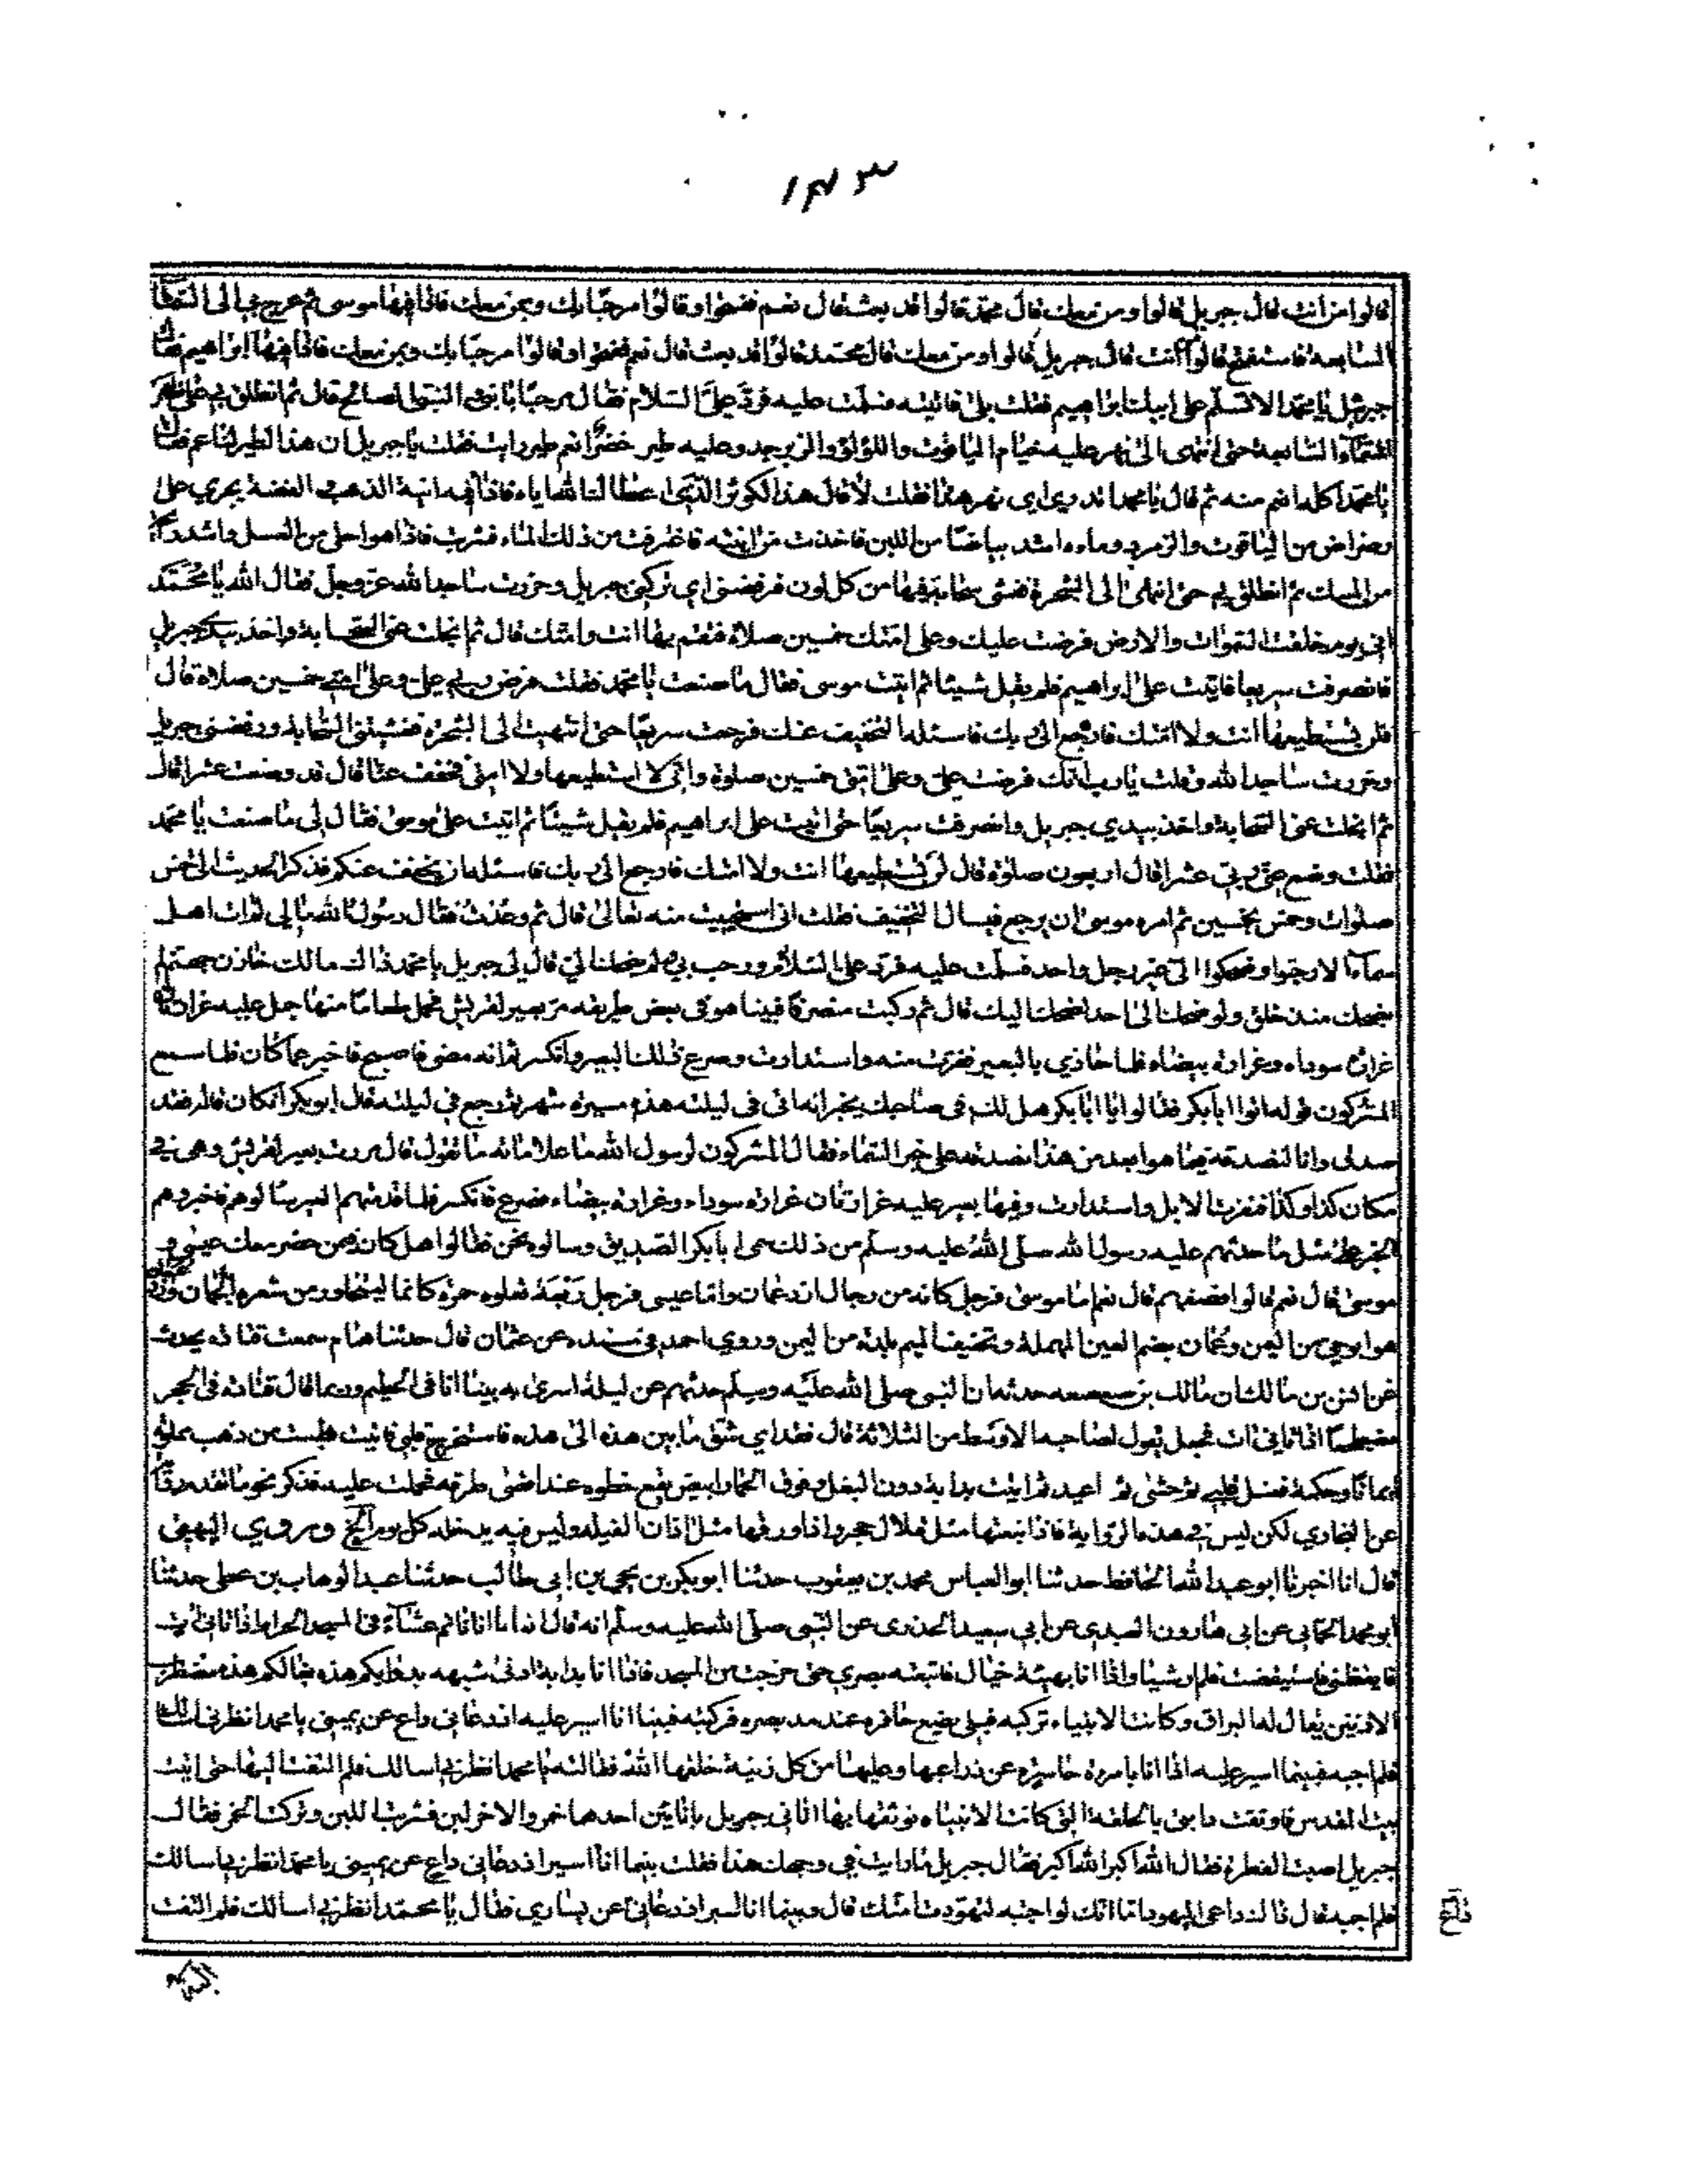 ١٤٣
قالوا من انت قال جبريل قالوا ومن معك قال محمد قالوا قد بعث قال نعم ففتحوا وقالوا مرحبا بك وبمن معك فاذا فيها موسى ثم عرج بى الى السماء
السابعة فاستفتح قالوا من انت قال جبريل قالوا ومن معك قال محمد قالوا قد بعث قال نعم ففتحوا وقالوا مرحبا بك وبمن معك فاذا فيها ابراهيم فقال
جبريل يا محمد الا تسلم على ابيك ابراهيم فقلت بلى فاتيته فسلمت عليه فرد علىّ السلام فقال مرحبا بابنى النبى الصالح قال ثم انطلق بى على ظهر
السماء السابعة حتى انتهى الى نهر عليه خيام الياقوت واللؤلؤ والزبرجد وعليه طير خضر انعم طير رايت فقلت يا جبريل ان هذا الطير لناعم فقال
يا محمد اكله انعم منه ثم قال يا محمد اتدري اي نهر هذا فقلت لا قال هذا الكوثر الذى اعطاك الله اياه فاذا فيه انية الذهب والفضة يجري على
رضراض من الياقوت والزمرد وماءه اشد بياضا من اللبن فاخذت من انيته فاغترفت من ذلك الماء فشربت فاذا هو احلى من العسل واشد رائحة
من المسك ثم انطلق بى حتى انتهى الى الشجرة فغشى سحابة فيها من كل لون فرفضنى اي تركنى جبريل وخررت ساجدا لله عز وجل فقال الله يا محمد
انى يوم خلقت السموات والارض فرضت عليك وعلى امتك خمسين صلاة فقم بها انت وامتك قال ثم انجلت عنى السحابة واخذ بيدى جبريل
فانصرفت سريعا فاتيت على ابراهيم فلم يقل شيئا ثم اتيت موسى فقال ما صنعت يا محمد فقلت فرض ربى على وعلى امتى خمسين صلاة قال
فلن تستطيعها انت ولا امتك فارجع الى ربك فاسئله التخفيف عنك فرجعت سريعا حتى انتهيت الى الشجرة فغشيتنى السحابة ورفضنى جبريل
وخررت ساجدا لله وقلت يا رب انك فرضت على وعلى امتى خمسين صلوة وانى لا استطيعها ولا امتى فخفف عنا قال قد وضعت عشرا قال
ثم انجلت عنى السحابة واخذ بيدي جبريل وانصرفت سريعا حتى اتيت على ابراهيم فلم يقل شيئا ثم اتيت على موسى فقال لى ما صنعت يا محمد
فقلت وضع عنى ربى عشرا قال اربعون صلوة قال لن تستطيعها انت ولا امتك فارجع الى ربك فاسئله ان يخفف عنكم فذكر الحديث الى خمس
صلوات وخمس بخمسين ثم امره موسى ان يرجع فيسال التخفيف فقلت انى استحييت منه تعالى قال ثم فقال رسول الله مالى لم ات اهل
سماء الا رحبوا وضحكوا الى غير رجل واحد فسلمت عليه فرد على السلام ورحب بى ولم يضحك الى قال لى جبريل يا محمد ذاك مالك خازن جهنم لم
يضحك منذ خلق ولو ضحك الى احد لضحك اليك قال ثم ركبت منصرفا فبينا هو فى بعض طريقه مر بعير لقريش تحمل طعاما منها جمل عليه غرارتان
غرارة سوداء وغرارة بيضاء فلما حاذي بالعير نفرت منه واستدارت وصرع ذلك البعير وانكسر ثم انه مضى فاصبح فاخبر عما كان فلما سمع
المشركون قوله اتوا ابا بكر فقالوا يا ابا بكر هل لك فى صاحبك يخبر انه اتى فى ليلته هذه مسيرة شهر ثم رجع في ليلته فقال ابو بكر ان كان قاله فقد
صدق وانا لنصدقه فيما هو ابعد من هذا نصدقه على خبر السماء فقال المشركون لرسول الله ما علامات ما تقول قال مررت بعير لقريش وهى فى
مكان كذا وكذا فنفرت الابل واستدارت وفيها بعير عليه غرارتان غرارة سوداء وغرارة بيضاء فصرع فانكسر فلما قدمتهم العير سالوهم فاخبروهم
الخبر على مثل ما حدثهم عليه رسول الله صلى الله عليه وسلم من ذلك سمى ابا بكر الصديق وسالوه نحن فقالوا هل كان فيمن حضر معك عيسى و
موسى قال نعم قالوا فصفهم قال نعم اما موسى فرجل كانه من رجال ازد عمان واما عيسى فرجل ربعة تعلوه حمرة كانما يتحادر من شعره الجمان وازد
هو ابو حى من اليمن وعمان بضم العين المهملة وتخفيف الميم بلدة من اليمن وروي احمد فى مسنده عن عثمان قال حدثنا همام سمعت قتادة يحدث
عن انس بن مالك ان مالك بن صعصعة حدثه ان النبى صلى الله عليه وسلم حدثهم عن ليلة اسرى به بينا انا فى الحطيم وربما قال قتادة فى الحجر
مضطجعا اذ اتانى ات فجعل يقول لصاحبه الاوسط من الثلاثة قال فقد اي شق ما بين هذه الى هذه فاستخرج قلبى فاتيت بطست من ذهب مملوة
ايمانا وحكمة فغسل قلبى ثم حشى ثم اعيد ثم اتيت بدابة دون البغل وفوق الحمار ابيض يقع خطوه عند اقصى طرفه فحملت عليه فذكر نحو ما تقدم رقا
عن البخاري لكن ليس فى هذه الرواية فاذا نبقها مثل قلال هجر واذا ورقها مثل اذان الفيلة وليس فيه يدخله كل يوم الخ ويروي البيهقى
قال انا اخبرنا ابو عبد الله الحافظ حدثنا ابو العباس محمد بن يعقوب حدثنا ابو بكر بن يحيى بن ابى طالب حدثنا عبد الوهاب بن عطى حدثنا
ابو محمد الحمانى عن ابى هارون العبدي عن ابي سعيد الخدرى عن النبى صلى الله عليه وسلم انه قال انا نائم عشاء فى المسجد الحرام اذ اتانى ات
فايقظنى فاستيقضت فلم ار شيئا واذا انا بهيئة خيال فاتبعته بصري حتى خرجت من المسجد فاذا انا بدابة ادنى شبهه بدوابكم هذه بغالكم هذه مضطرب
الاذنين يقال له البراق وكانت الانبياء تركبه قبلى يضع حافره عند مد بصره فركبته فبينا انا اسير عليه اذ دعانى داع عن يمينى يا محمد انظرنى اسالك
فلم اجبه فبينما اسير عليه اذا انا بامرءة حاسرة عن ذراعيها وعليها من كل زينة خلقها الله فقالت يا محمد انظرنى اسالك فلم التفت اليها حتى اتيت
بيت المقدس فاوثقت دابتى بالحلقة التى كانت الانبياء توثقها بها اتانى جبريل بانائين احدهما خمر والاخر لبن فشربت اللبن وتركت الخمر فقال
جبريل اصبت الفطرة فقال الله اكبر الله اكبر فقال جبريل ما رايت فى وجهك هذا فقلت بينما انا اسير اذ دعانى داع عن يمينى يا محمد انظرنى اسالك
فلم اجبه قال ذاك داعى اليهود اما انك لو اجبته لتهودت امتك قال وبينما انا اسير اذ دعانى داع عن يساري فقال يا محمد انظرنى اسالك فلم التفت
اليه